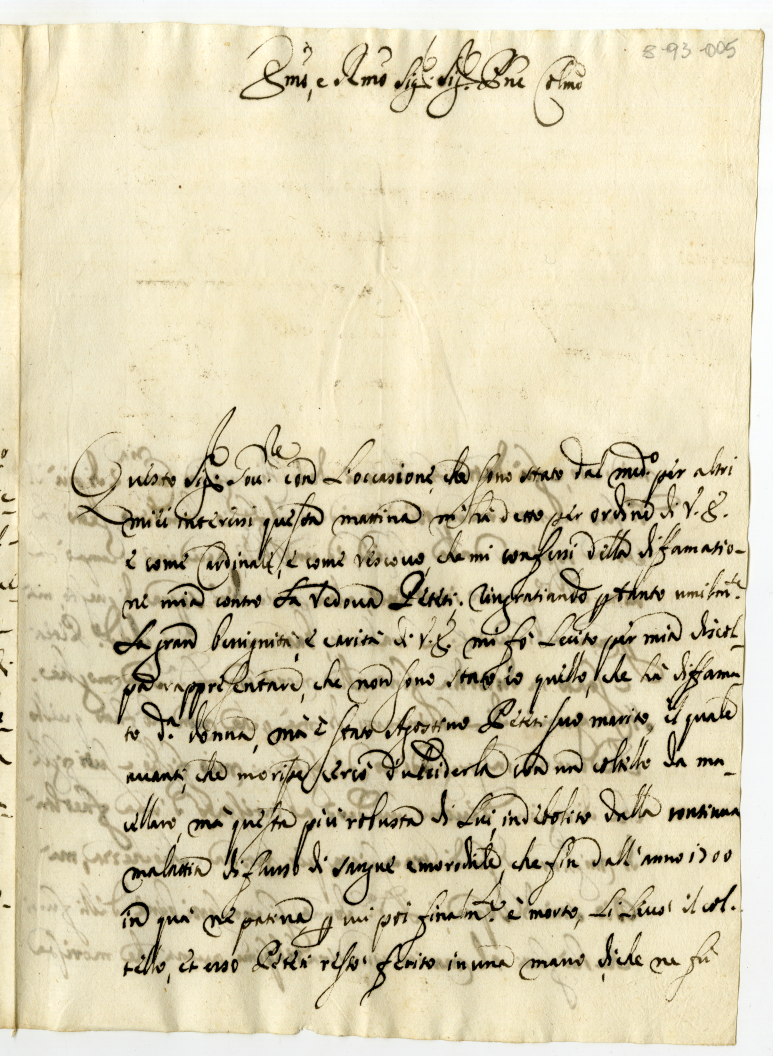 8-93-005
Em̃o, e Rm̃o Sig.r Sig.r Pñe Colmo
Questo Sig.r Gov.re con l'occasione, che sono stato dal med.o per altri
miei interessi questa mattina m'hà detto per ordine di V. E.
e come Cardinale, e come Vescovo, che mi confessi della diffamatio-
ne mia contro la Vedova Peteti. Ringratiando p tanto umilm.te
la gran benignità, e carità di V. E. mi fò lecito per mia discol-
pa rappresentare, che non sono stato io quello, che hà diffama-
to d.a donna, mà è stato Agostino Peteti suo marito, il quale
avanti, che morisse cercò d'ucciderla con un coltello da ma-
cellaro, mà questa più robusta di lui, indebolito dalla continua
malattia di flusso di sangue emorodale, che fin dall'anno 1700
in quà ne pativa, p cui poi finalm.te è morto, li levò il col-
tello, et esso Peteti restò ferito in una mano, di che ne fù